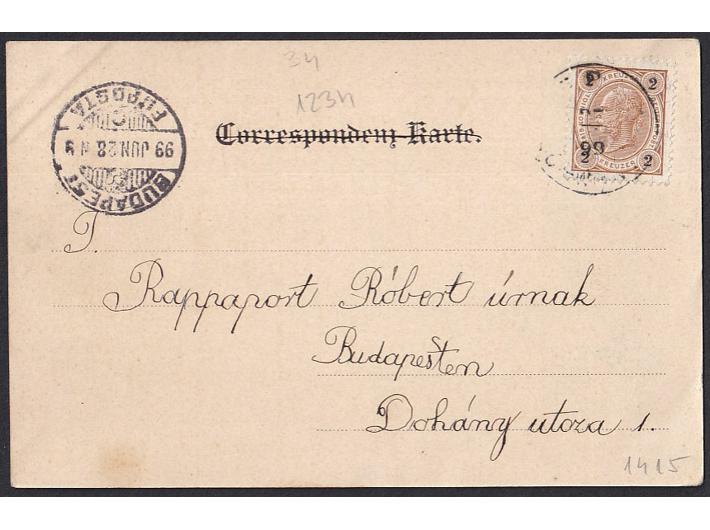 34
1234
Correspondenz-Karte.
2 KREUZER 2
2 KREUZER 2
99
BUDAPEST
99 JUN 28 N 9
FŐPOSTA
T.
Rappaport Róbert úrnak
Budapesten
Dohány utcza 1.
1415